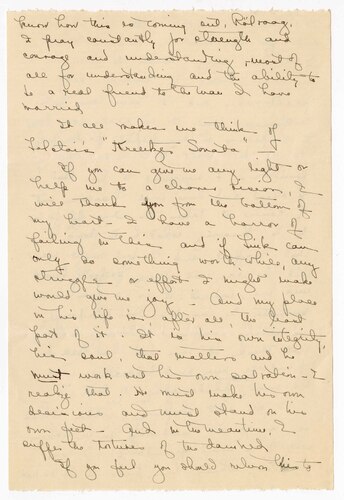 know how this is coming out, Rölvaag.
I pray constantly for strength and
courage and understanding, most of
all for understanding and the ability to
be a real friend to the man I have
married.
It all makes me think of
Tolstoi's "Kreutzer Sonata"
If you can give me any light or
help me to a clearer vision, I
will thank you from the bottom of
my heart. I have a horror of
failing in this and if Link can
only do something worth while, any
struggle or effort I might make
would give me joy. And my place
in his life is, after all, the least
part of it. It is his own integrity,
his soul, that matters and he
must work out his own salvation - I
realize that. He must make his own
decisions and must stand on his
own feet. And in the meantime, I
suffer the tortures of the damned.
If you feel you should return this to